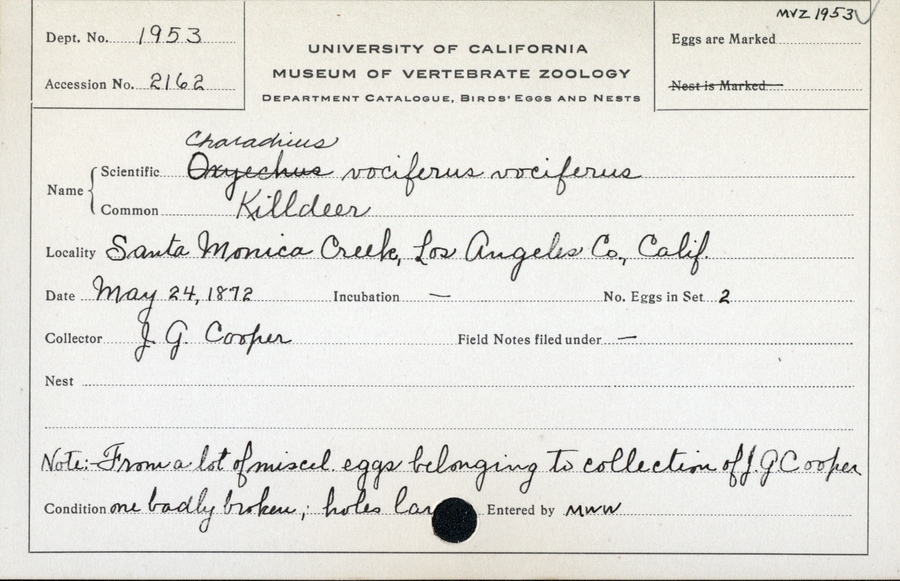 MVZ 1953
Dept. No. 1953
Accession No. 2162
UNIVERSITY OF CALIFORNIA
MUSEUM OF VERTEBRATE ZOOLOGY
DEPARTMENT CATALOGUE, BIRDS' EGGS AND NESTS
Eggs are Marked
Nest is Marked
Charadrius
Name { Scientific Oxyechus vociferus vociferus
Common Killdeer
Locality Santa Monica Creek, Los Angeles Co., Calif.
Date May 24, 1872 Incubation — No. Eggs in Set 2
Collector J. G. Cooper Field Notes filed under —
Nest
Note:- From a lot of miscel. eggs belonging to collection of J. G Cooper
Condition one badly broken; holes Entered by MWW